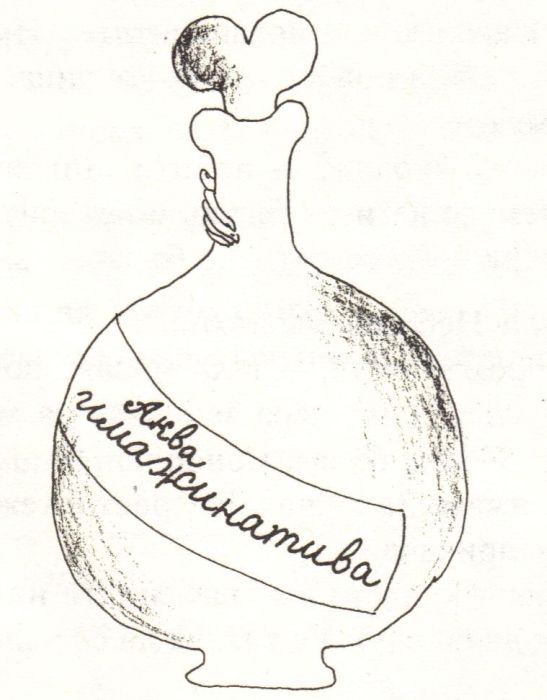 Аква
имажинатива